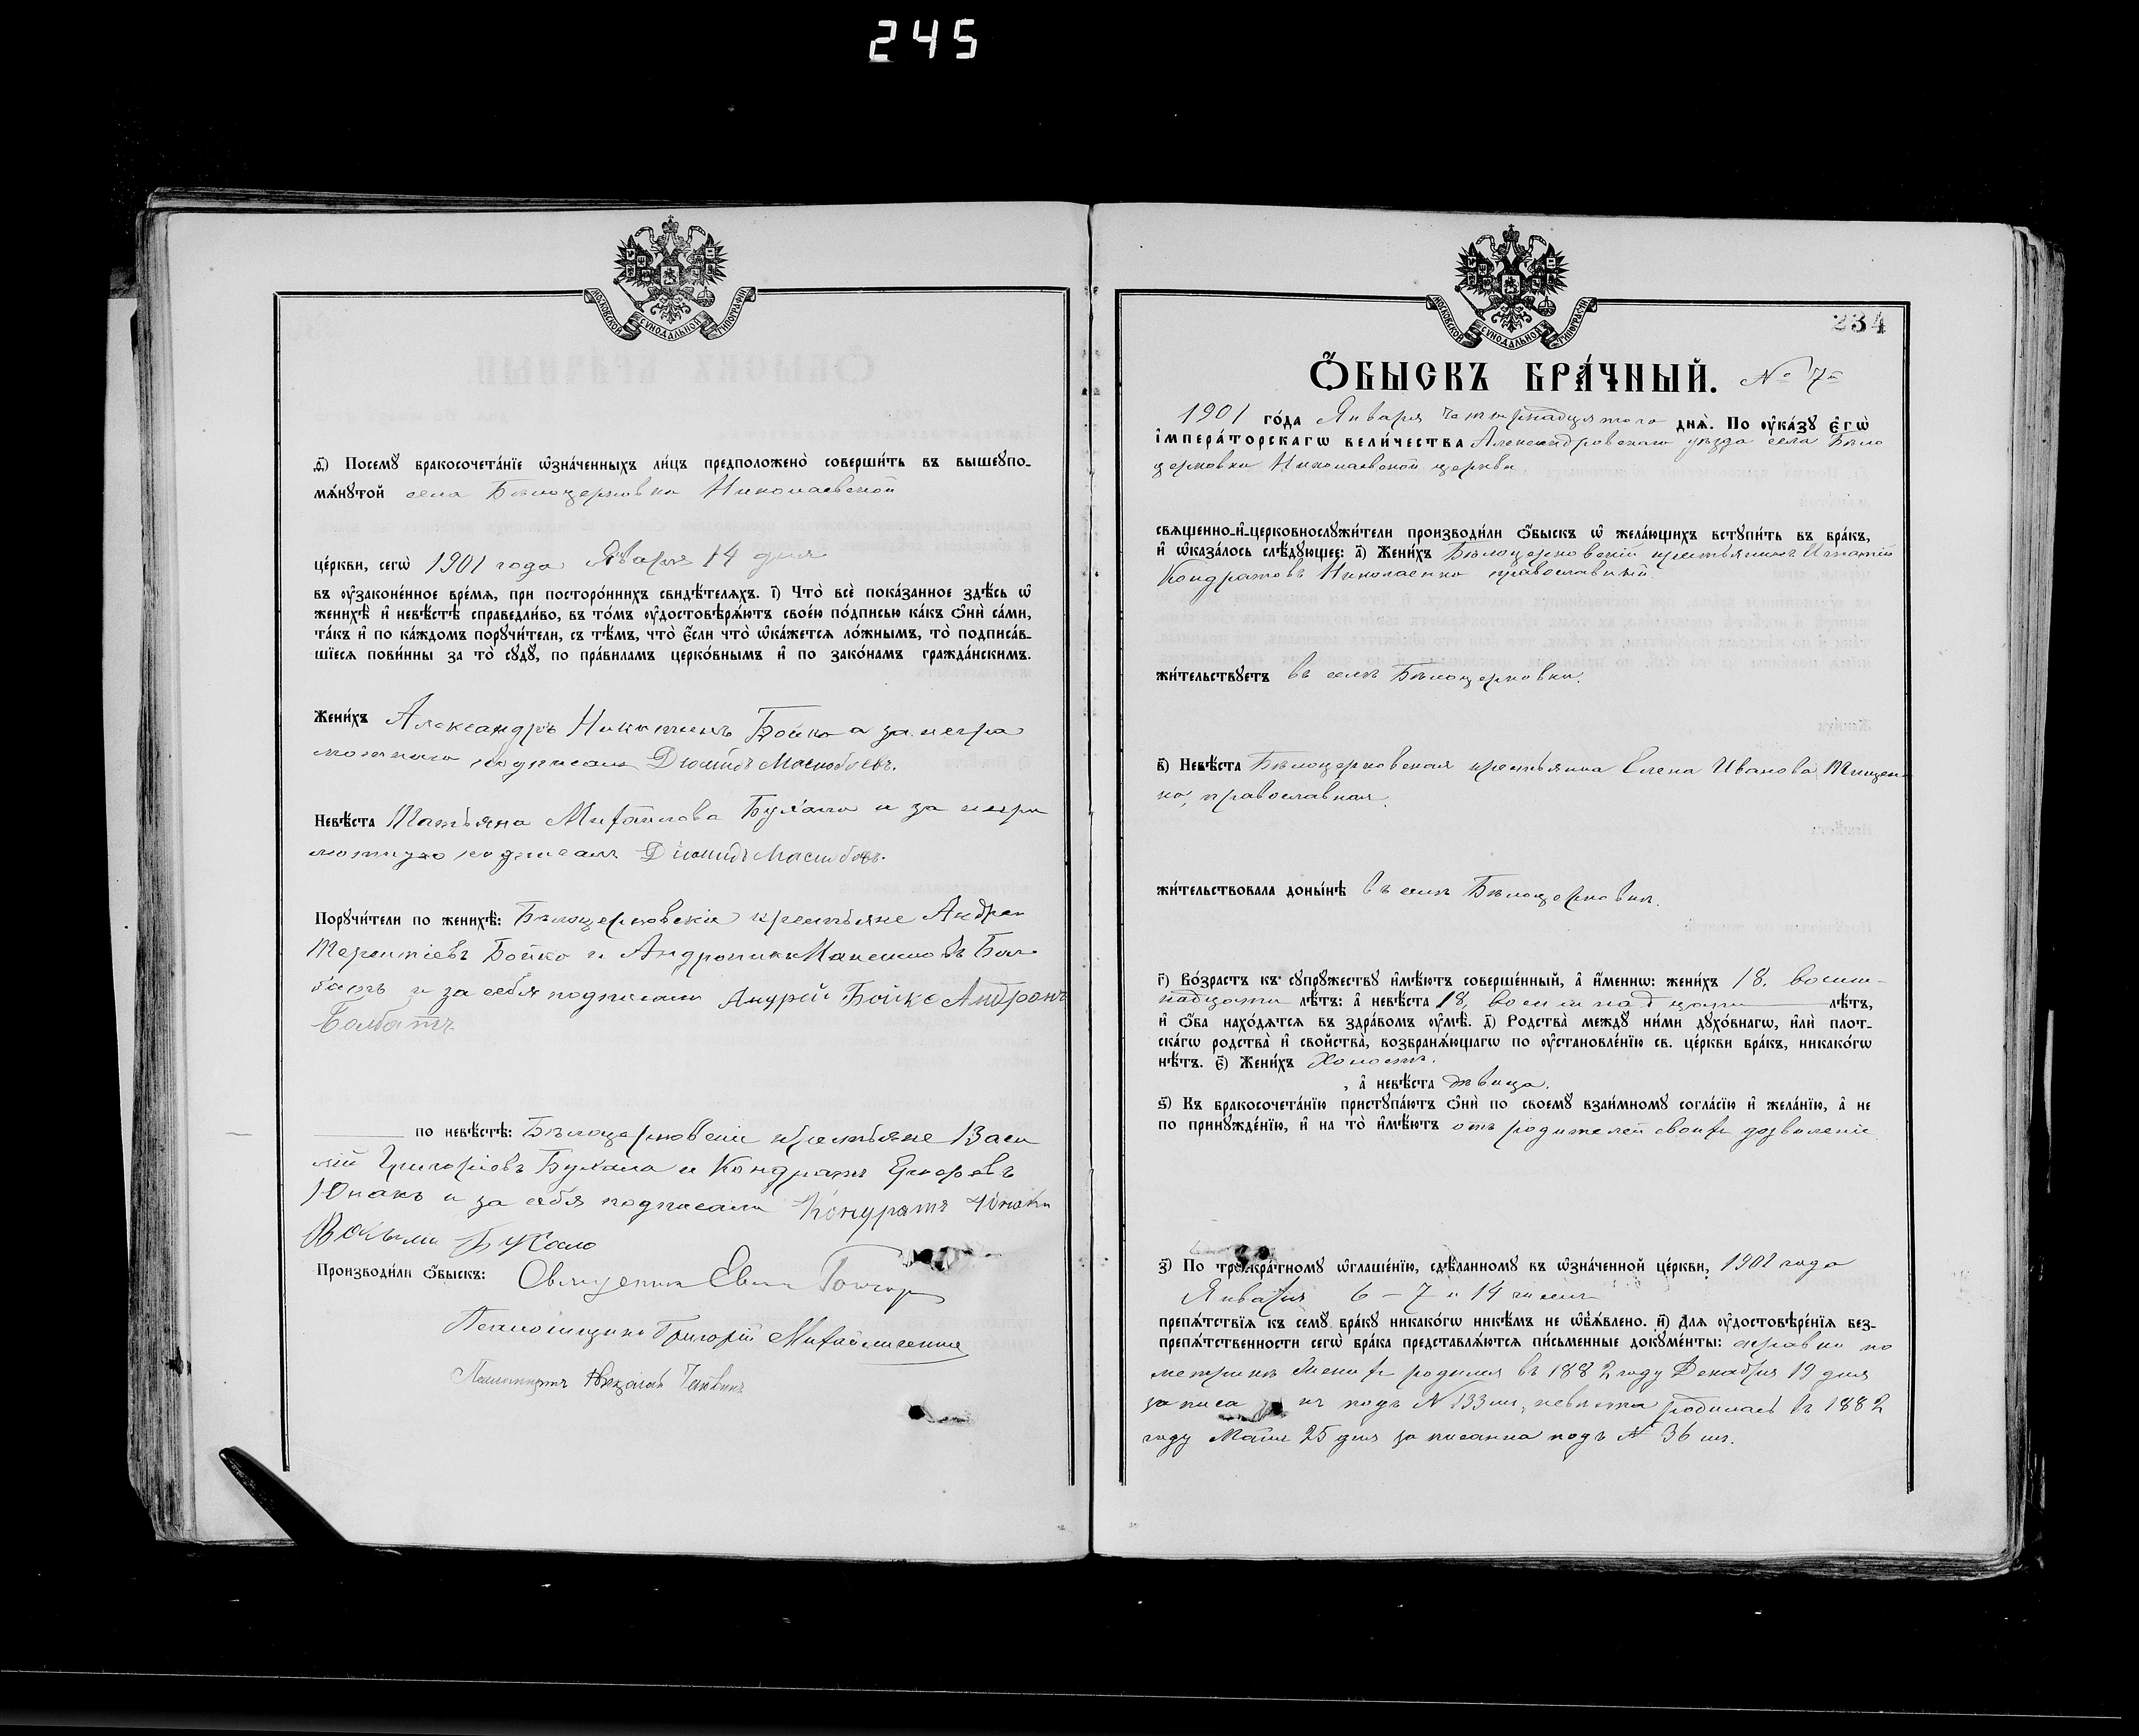 245
МОСКОВСКОЙ СУНОДАЛЬНОЙ ТИПОГРАФІИ
д҃і) Посемꙋ̀ бракосочета́нїе ѡ҆зна́ченныхъ ли́цъ предположено̀ соверши́ть въ вышеупо-
мѧ́нꙋтой села Бѣлоцерковки Николаевской
це́ркви, сегѡ̀ 1901 года Января 14 дня
въ ᲂу҆законе́нное вре́мѧ, при посторо́ннихъ свидѣ́телѧхъ. і҃) Что̀ всѐ пока́занное здѣ́сь ѡ҆
женихѣ̀ и҆ невѣ́стѣ справедли́во, въ то́мъ ᲂу҆достовѣрѧ́ютъ свое́ю по́дписью ка́къ ѻ҆нѝ са́ми,
та́къ и҆ по ка́ждомъ порꙋчи́тели, съ тѣ́мъ, что̀ є҆́сли что̀ ѡ҆ка́жетсѧ ло́жнымъ, то̀ подписа́в-
шїесѧ пови́нны за то̀ сꙋдꙋ̀, по пра́виламъ церко́внымъ и҆ по зако́намъ гражда́нскимъ.
Жени́хъ Александръ Никитинъ Бойко а за негра
мотнаго подписалъ Дiомидъ Маслобоевъ.
Невѣ́ста Татьяна Михайлова Бухало и за негра
мотную подписалъ Дiомидъ Маслобоевъ.
Порꙋчи́тели по женихѣ̀: Бѣлоцерковскіе крестьяне Андрей
Терентіевъ Бойко и Андроникъ Максимовъ Бал
батъ и за себя подписали Андрей Бойко Андронъ
Балбатъ
по невѣ́стѣ: Бѣлоцерковскіе крестьяне Васи
лій Григоріевъ Бухало и Кондратъ Егоровъ
Юнакъ и за себя подписали Кондратъ Юнакъ
Бухало
Производи́ли ѻ҆́быскъ: Священникъ
Псаломщикъ Григорій Михайличенко
Псаломщикъ
МОСКОВСКОЙ СУНОДАЛЬНОЙ ТИПОГРАФІИ
234
Ѻ҆́БЫСКЪ БРА́ЧНЫЙ. № 7й
1901 го́да Января четырнадцатого днѧ̀. По ᲂу҆ка́зꙋ Є҆гѡ̀
і҆мпера́торскагѡ вели́чества Александровскаго уѣзда села Бѣло
церковки Николаевской церкви
свѧще́нно-и҆-церковнослꙋжи́тели производи́ли ѻ҆́быскъ ѡ҆ жела́ющихъ встꙋпи́ть въ бра́къ,
и҆ ѡ҆каза́лось слѣ́дꙋющее: а҃) Жени́хъ Бѣлоцерковскій крестьянинъ Игнатій
Кондратовъ Николаенко православный.
жи́тельствꙋетъ въ селѣ Бѣлоцерковки.
в҃) Невѣ́ста Бѣлоцерковская крестьянка Елена Иванова Тищен
ко, православная.
жи́тельствовала доны́нѣ въ селѣ Бѣлоцерковки.
г҃) Во́зрастъ къ сꙋпрꙋ́жествꙋ и҆мѣ́ютъ соверше́нный, а҆ и҆́меннѡ: жени́хъ 18, восем-
надцати лѣ́тъ: а҆ невѣ́ста 18, восемнадцати лѣ́тъ,
и҆ ѻ҆́ба нахо́дѧтсѧ въ здра́вомъ ᲂу҆мѣ̀. д҃) Родства̀ междꙋ̀ ни́ми дꙋхо́внагѡ, и҆лѝ плот-
ска́гѡ родства̀ и҆ сво́йства, возбранѧ́ющагѡ по ᲂу҆становле́нїю св. це́ркви бра́къ, никако́гѡ
нѣ́тъ. є҃) Жени́хъ Холостъ.
, а҆ невѣ́ста дѣвица.
ѕ҃) Къ бракосочета́нїю пристꙋпа́ютъ ѻ҆нѝ по своемꙋ̀ взаи́мномꙋ согла́сїю и҆ жела́нїю, а҆ не
по принꙋжде́нїю, и҆ на то̀ и҆мѣ́ютъ отъ родителей своихъ дозволеніе
з҃) По троекра́тномꙋ ѡ҆глаше́нїю, сдѣ́ланномꙋ въ ѡ҆зна́ченной це́ркви, 1901 года
Января 6 – 7 и 14 чиселъ
препѧ́тствїѧ къ семꙋ̀ бра́кꙋ никако́гѡ никѣ́мъ не ѡ҆б̾ѧ́влено. и҃) Длѧ ᲂу҆достовѣре́нїѧ без-
препѧ́тственности сегѡ̀ бра́ка представлѧ́ютсѧ пи́сьменные докꙋме́нты: справки по
метрикѣ женихъ родился въ 1882 году Декабря 19 дня
записанъ подъ № 133 ш., невѣста родилась въ 1882
году Маія 25 дня записанна подъ № 36 ш.